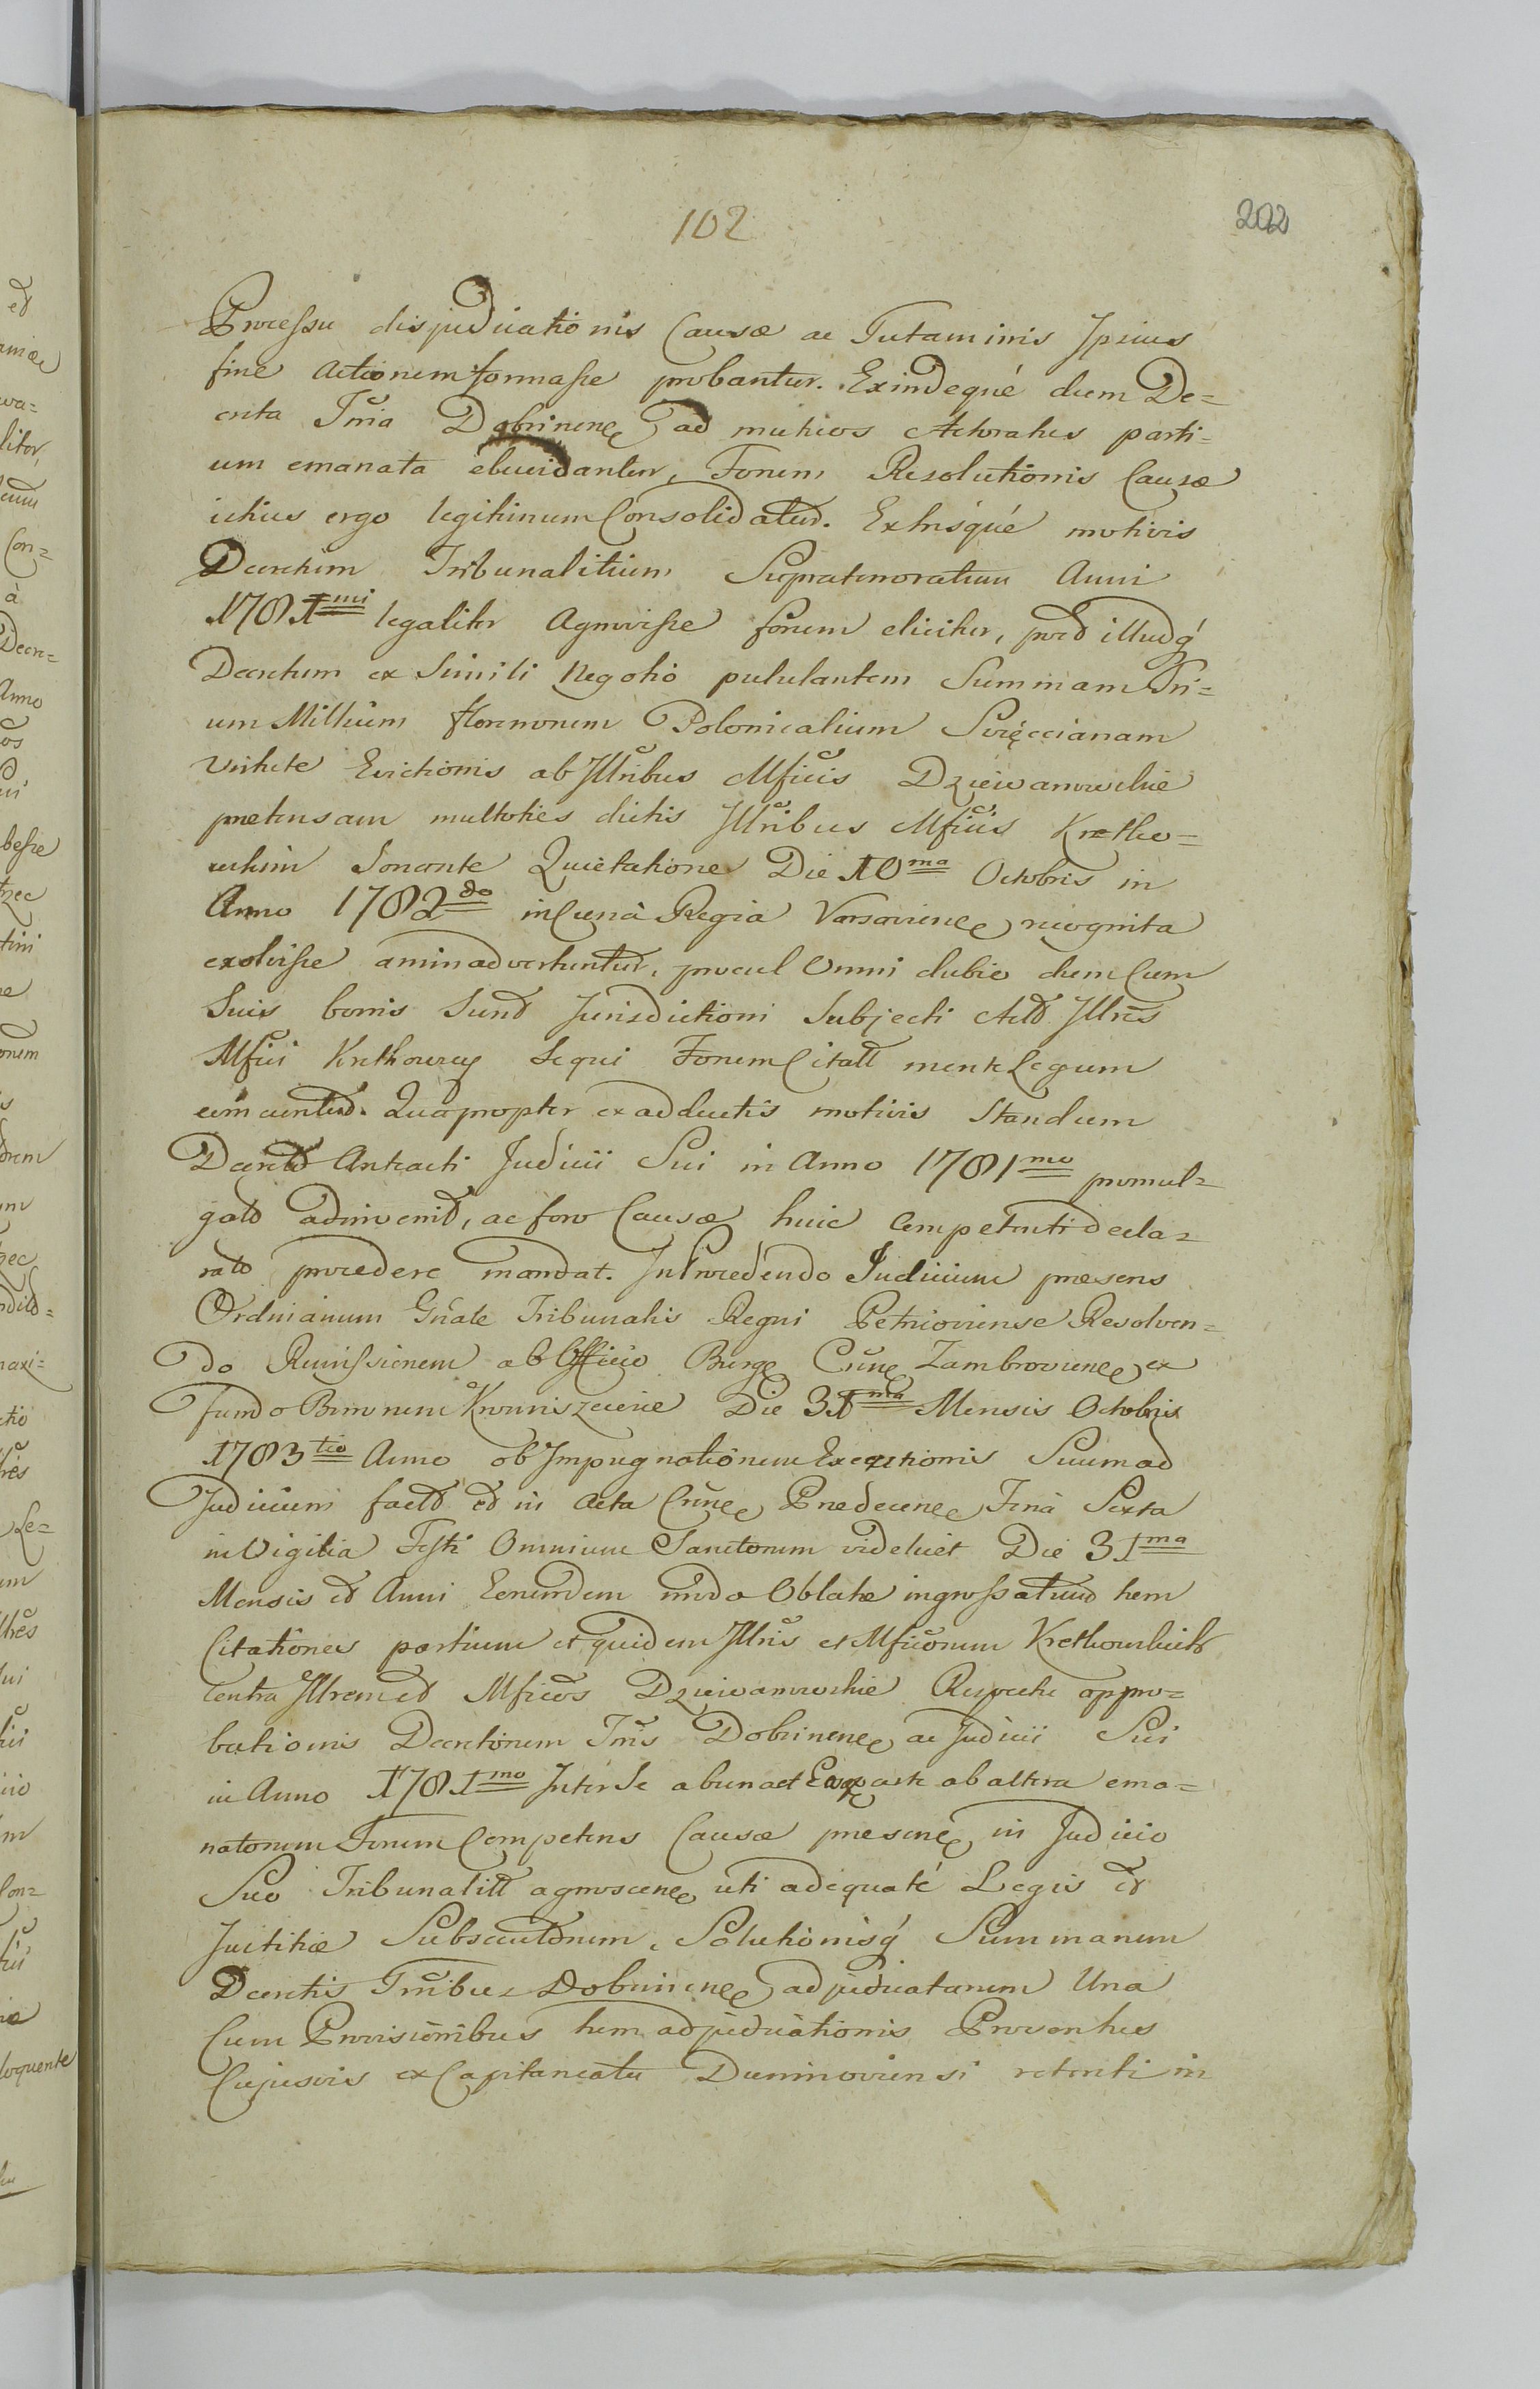 102
202
Processu disjudicationis Causæ ac Tutaminis Ipsius
fine Actionem formasse probantur. Exindequé dum De=
creta Trria Dobrinen ad mutuos Actoratus parti=
um emanata elucidantur, Forum Resolutionis Causæ
istius ergo legitimum Consolidatur. Ex hisqué motivis
Decretum Tribunalitium Supratenoratum Anni
1781mi legaliter Agnovisse forum elicitur, post illudq
Decretum ex Simili Negotio pululantem Summam Tri=
um Millium florenorum Polonicalium Święccianam
virtute Evictionis ab Illribus Mficis Dziewanowskie
pretensam multoties dictis Illribus Mficis Kretko=
wskim Sonante Quietatione Die 10ma Octobris in
Anno 1782do in Curia Regia Varsaviene recognita
exolvisse animadvertuntur, procul Omni dubio dum Cum
Suis bonis Sunt Jurisdictioni Subjecti Actt Illres
Mfici Kretkowscy Sequi Forum Citatt mente Legum
evincuntur. Quapropter ex adductis motivis Standum
Decreto Anteacti Judicii Sui in Anno 1781mo promul=
gato adinvenit, ac foro Causæ huic Competenti decla=
rato procedere mandat. In Procedendo Judicium præsens
Ordinarium Gnale Tribunalis Regni Petricoviense Resolven=
do Remissionem ab Officio Burg Crune Zambroviene ex
fundo Bonorum Die 31ma Mensis Octobris
1783tio Anno ob Impugnationem Executionis Suum ad
Judicium factt et in Acta Crune Predecene Feria Sexta
in Vigilia Festi Omnium Sanctorum videlicet Die 31ma
Mensis et Anni Eorundem modo Oblatæ ingrossatam tum
Citationes partium et quidem Illris et Mficorum Kretkowskich
Contra Illrem et Mficos Dziewanowskie Respectu appro=
bationis Decretorum Trris Dobrinene ac Judicii Sui
in Anno 1781mo Inter Se ab una et Ea parte ab altera ema=
natorum Forum Competens Causæ præsene in Judicio
Suo Tribunalitt agnoscene uti adequaté Legis et
Justitiæ Subsecutorum, Solutionisq Summarum
Decretis Trribus Dobrinene adjudicatarum Una
Cum Provisionibus tum adjudicationis Proventus
Cujusvis ex Capitaneatu Duninoviensi retenti in